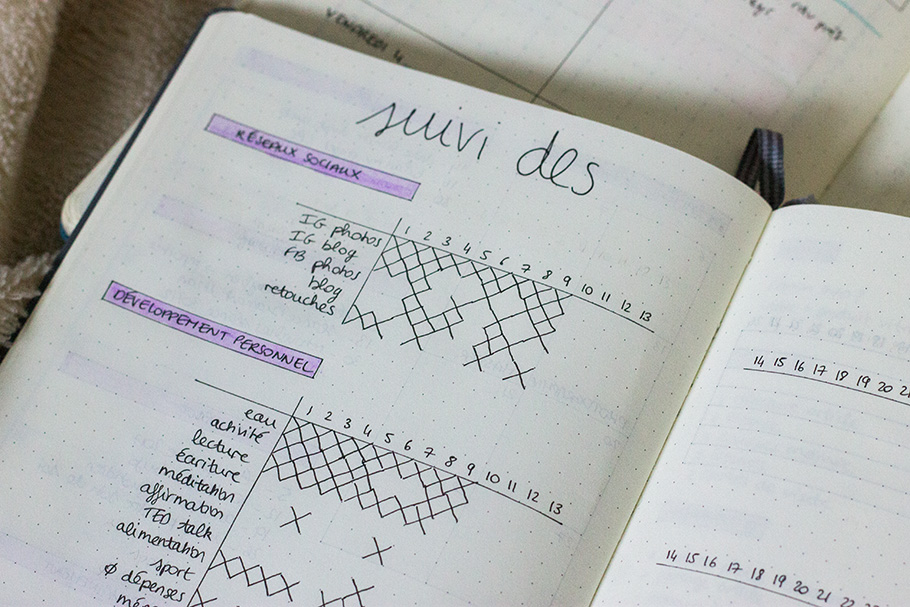 VENDREDI 4
suivi des
RÉSEAUX SOCIAUX
1 2 3 4 5 6 7 8 9 10 11 12 13
IG photos
IG blog
FB photos
blog
retouches
DÉVELOPPEMENT PERSONNEL
1 2 3 4 5 6 7 8 9 10 11 12 13
eau
activité
lecture
écriture
méditation
affirmation
TED talk
alimentation
sport
ø dépenses
14 15 16 17 18 19 20
14 15 16 17 18 19 20 21 22